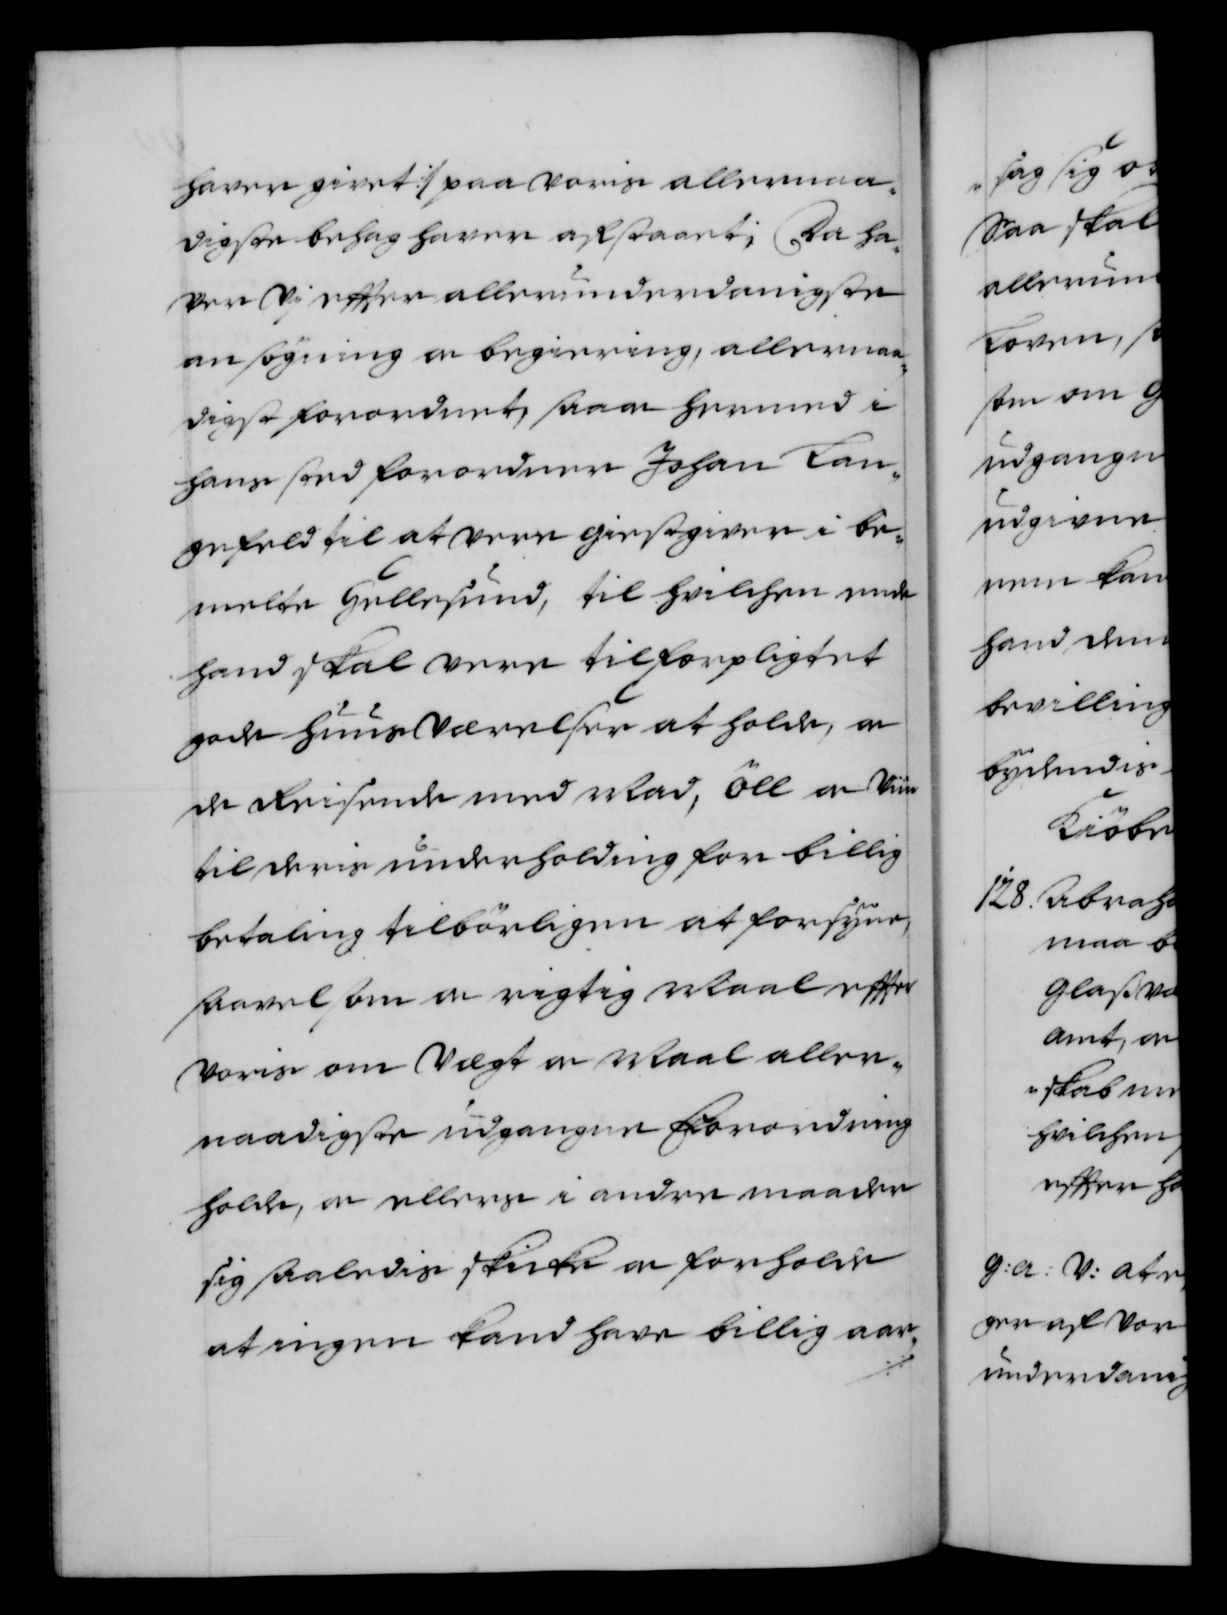 haver givet:/ paa voris allernaa-
digste behag haver afstaaet; Da ha-
ver Vj effter allerunderdanigste
ansögning oc begiering, allernaa-
digst forordnet, saa oc hermed i
hans sted forordner Johan Lan-
gefeld til at vere Giestgiver i be-
melte Gullesund, til hvilchen ende
hand skal vere tilforpligtet
gode huus Værelser at holde, oc
de Reisende med Mad, öll oc Viin
til deris underholding for billig
betaling tilbörligen at forsyne,
saavelsom oc rigtig Maal effter
voris om Vægt oc Maal aller-
naadigste udgangne Forordning
holde, oc ellers i andre maader
sig saaledis skicke oc forholde
at ingen kand have billig aar-
sag sig o
Saa skal
allerun
Loven, s
som om G
udgangn
udgivne
nem kan
hand dem
bevilling
bydendis
Kiöbe
128. Abraha
maa b
Glasvæ
Amt, oc
skab me
hvilchen
effter ha
G: A: V: At e
ger af vor
underdanig